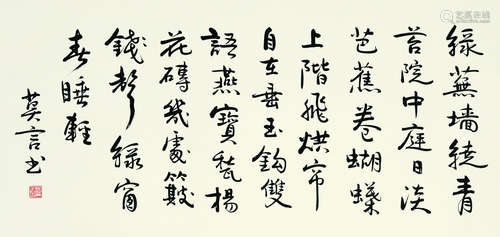 綠蕪墙繞青
苔院中庭日淡
芭蕉卷蝴蝶
上階飛烘帘
自在垂玉鈎雙
語燕寶甃楊
花磚幾處簸
錢聲綠窗
春睡輕
莫言书